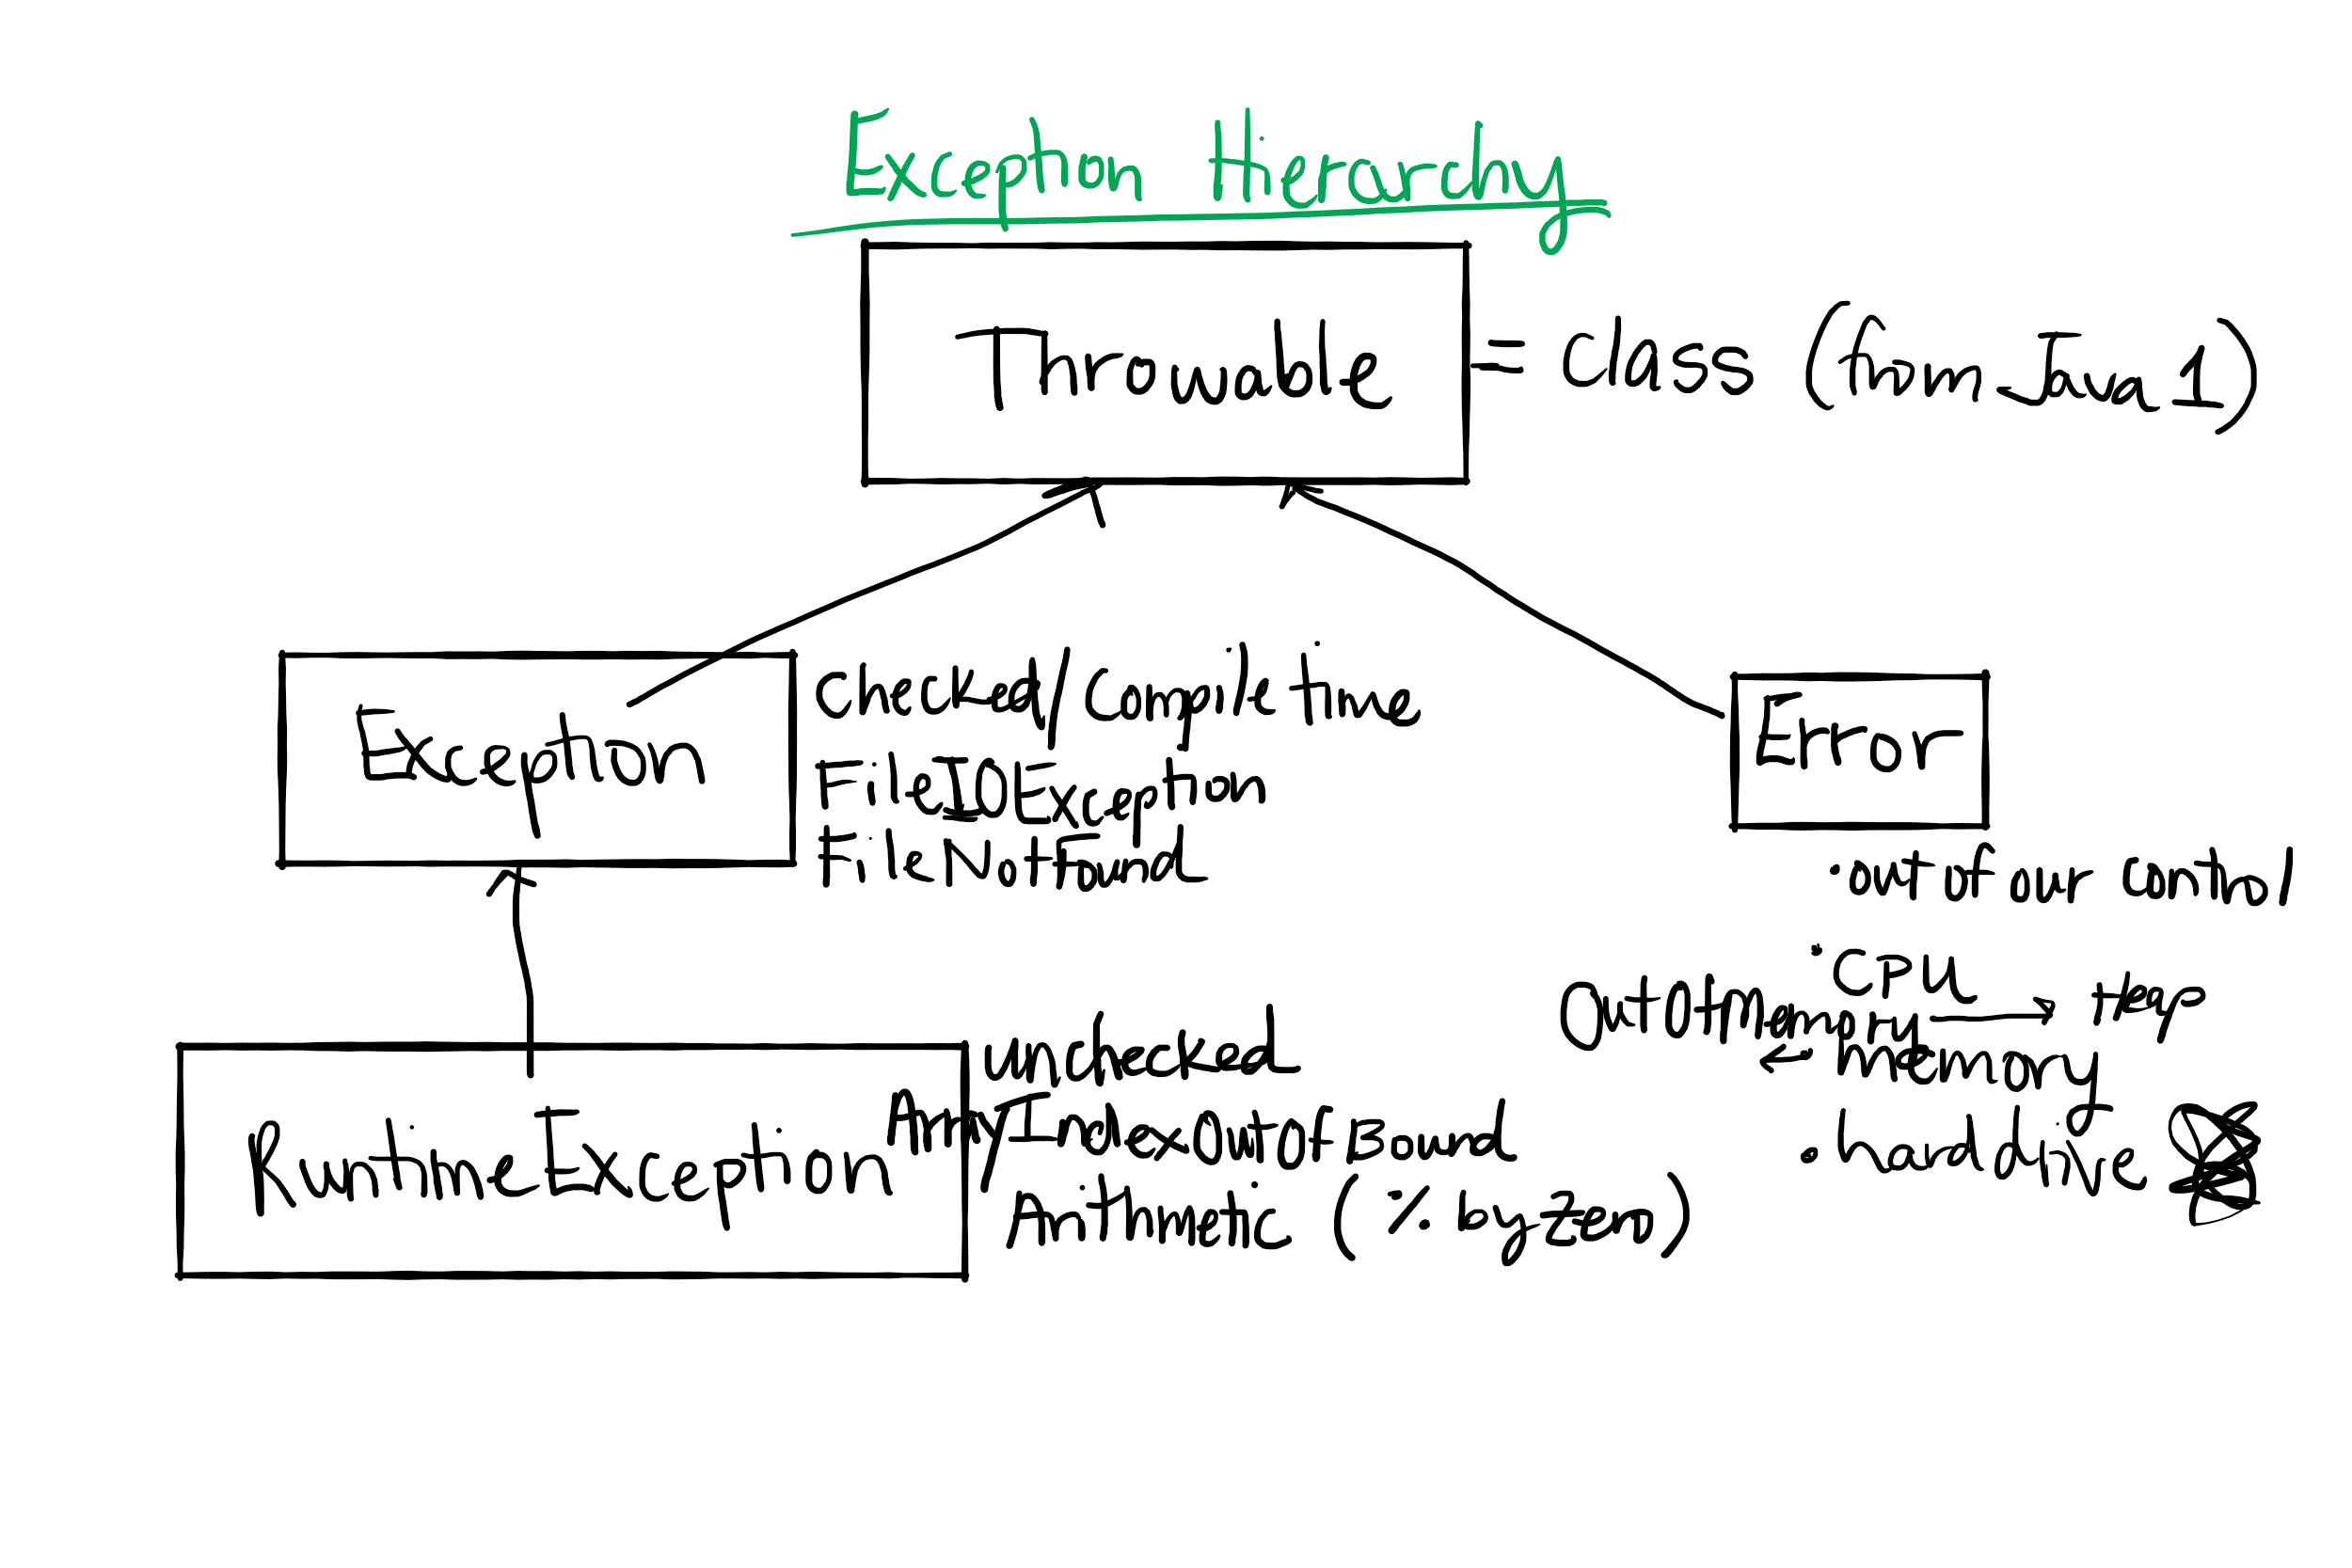 Exception Hierarchy
Throwable = class (from Java 1)
Exception
checked/compile time
FileIOException
FileNotFound
Error
• out of our control
• CPU
OutOfMemory → heap
= Memory
• hard drive
RuntimeException
unchecked
ArrIndexOutOfBound
Arithmetic (% by zero)